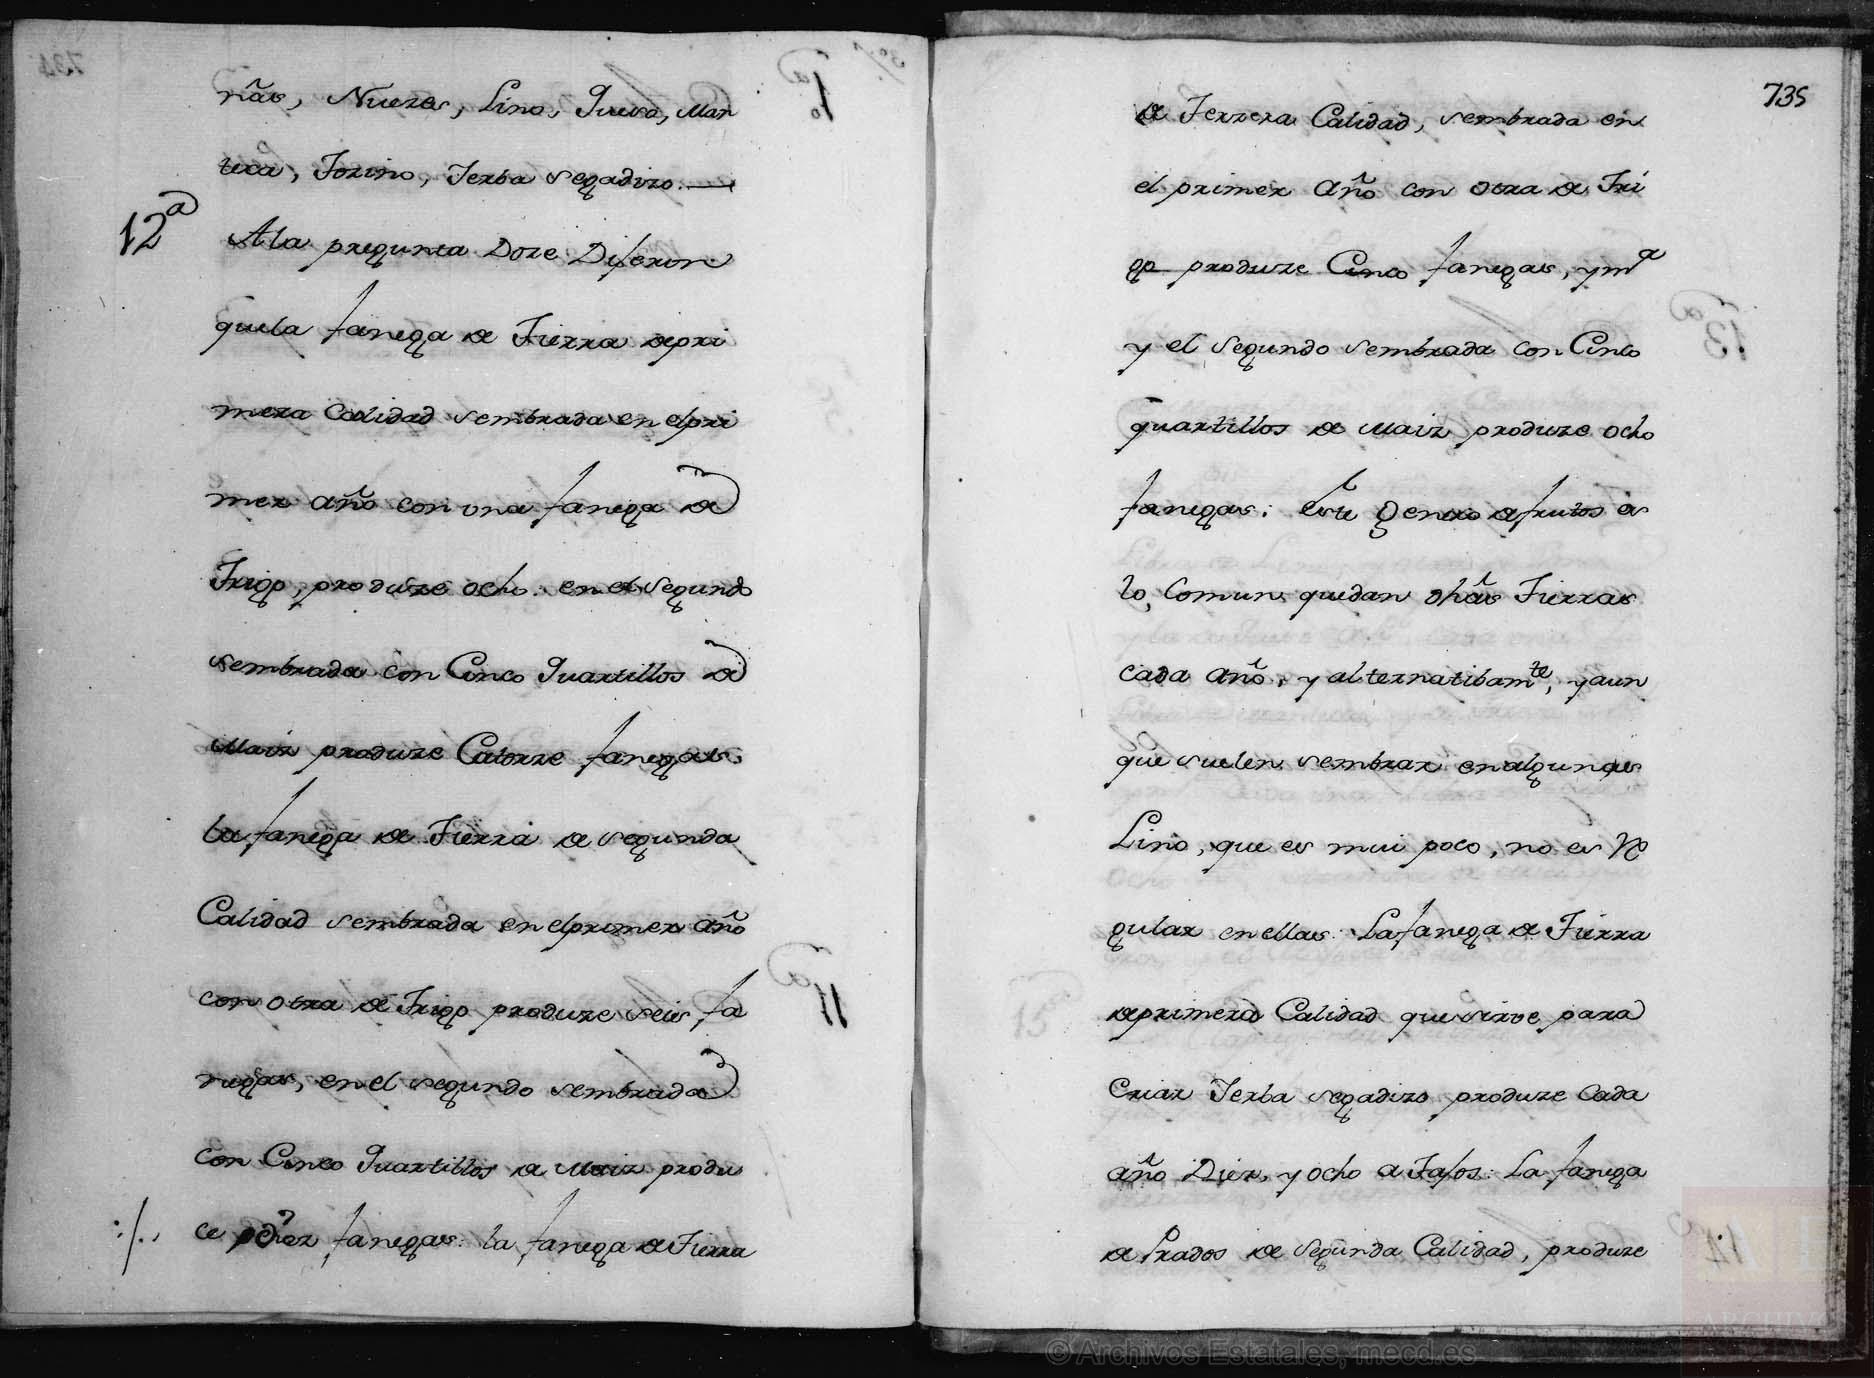 ñas, Nuezes, Lino, Queso, Man
teca, Tozino, Ierba Segadizo.
12ª
Ala pregunta Doze Dijeron
quela fanega de Tierra depri
mera Calidad sembrada en elpri
mer año con vna fanega de
Trigo, produze ocho: en el Segundo
sembrada con Cinco Quartillos de
Maiz produze Catorze fanegas.
la fanega de Tierra de segunda
Calidad sembrada en elprimer año
con otra de Trigo produze seis fa
negas, en el segundo sembrada
con Cinco Quartillos de Maiz produ
ce diez fanegas: la fanega de Tierra
735
de Terzera Calidad, sembrada en
el primer año con otra de Tri
go produze Cinco fanegas, y mª
y el Segundo sembrada con Cinco
quartillos de Maiz produze ocho
fanegas: Este Genero de frutos es
lo, Comun quedan dhãs Tierras
cada año, y alternatibamte, y aun
que suelen sembrar en algunas
Lino, que es mui poco, no es Re
gular en ellas: La fanega de Tierra
deprimera Calidad que sirve para
Criar Ierba segadizo produze Cada
año Diez, y ocho a Tajos: La fanega
de Prados de Segunda Calidad, produze
© Archivos Estatales, mecd.es